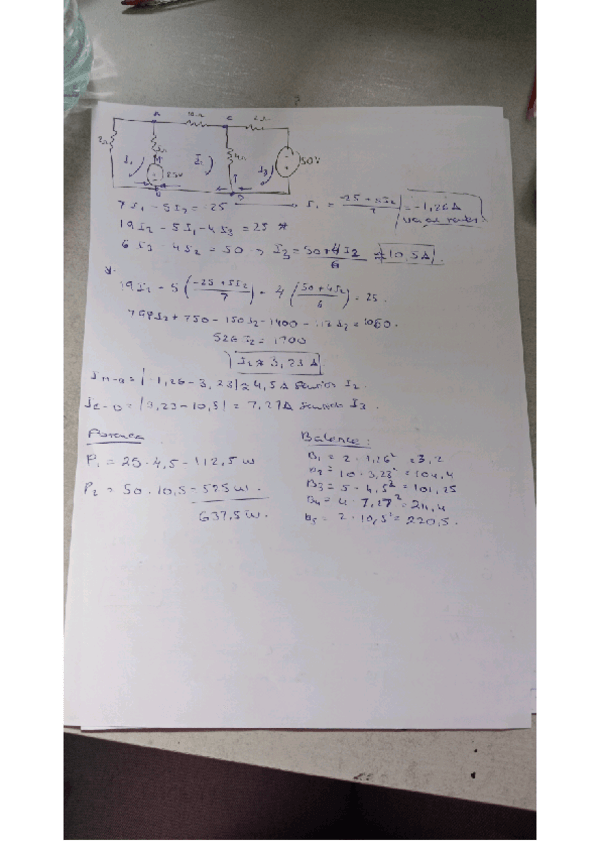 A 10Ω C 2Ω
2Ω 5Ω I₂ 4Ω I₃ 50V
I₁ 25V
B D
7I₁ - 5I₂ = -25 → I₁ = (-25 + 5I₂)/7 = -1,26A
19I₂ - 5I₁ - 4I₃ = 25
6I₃ - 4I₂ = 50 → I₃ = (50+4I₂)/6 = 10,5A
19I₂ - 5((-25+5I₂)/7) - 4((50+4I₂)/6) = 25
+ 750 - 150I₂ - 1400 - 112I₂ = 1050
526I₂ = 1700
I₂ = 3,23A
= |-1,26-3,23| = 4,5A sentido I₂
IC-D = |3,23-10,5| = 7,27A sentido I₃
Potencia
P₁ = 25 · 4,5 = 112,5w
P₂ = 50 · 10,5 = 525w.
637,5w.
Balance:
= 2 · 1,26² = 3,2
= 10 · 3,23² = 104,4
= 5 · 4,5² = 101,25
= 4 · 7,27² = 211,4
= 2 · 10,5² = 220,5.